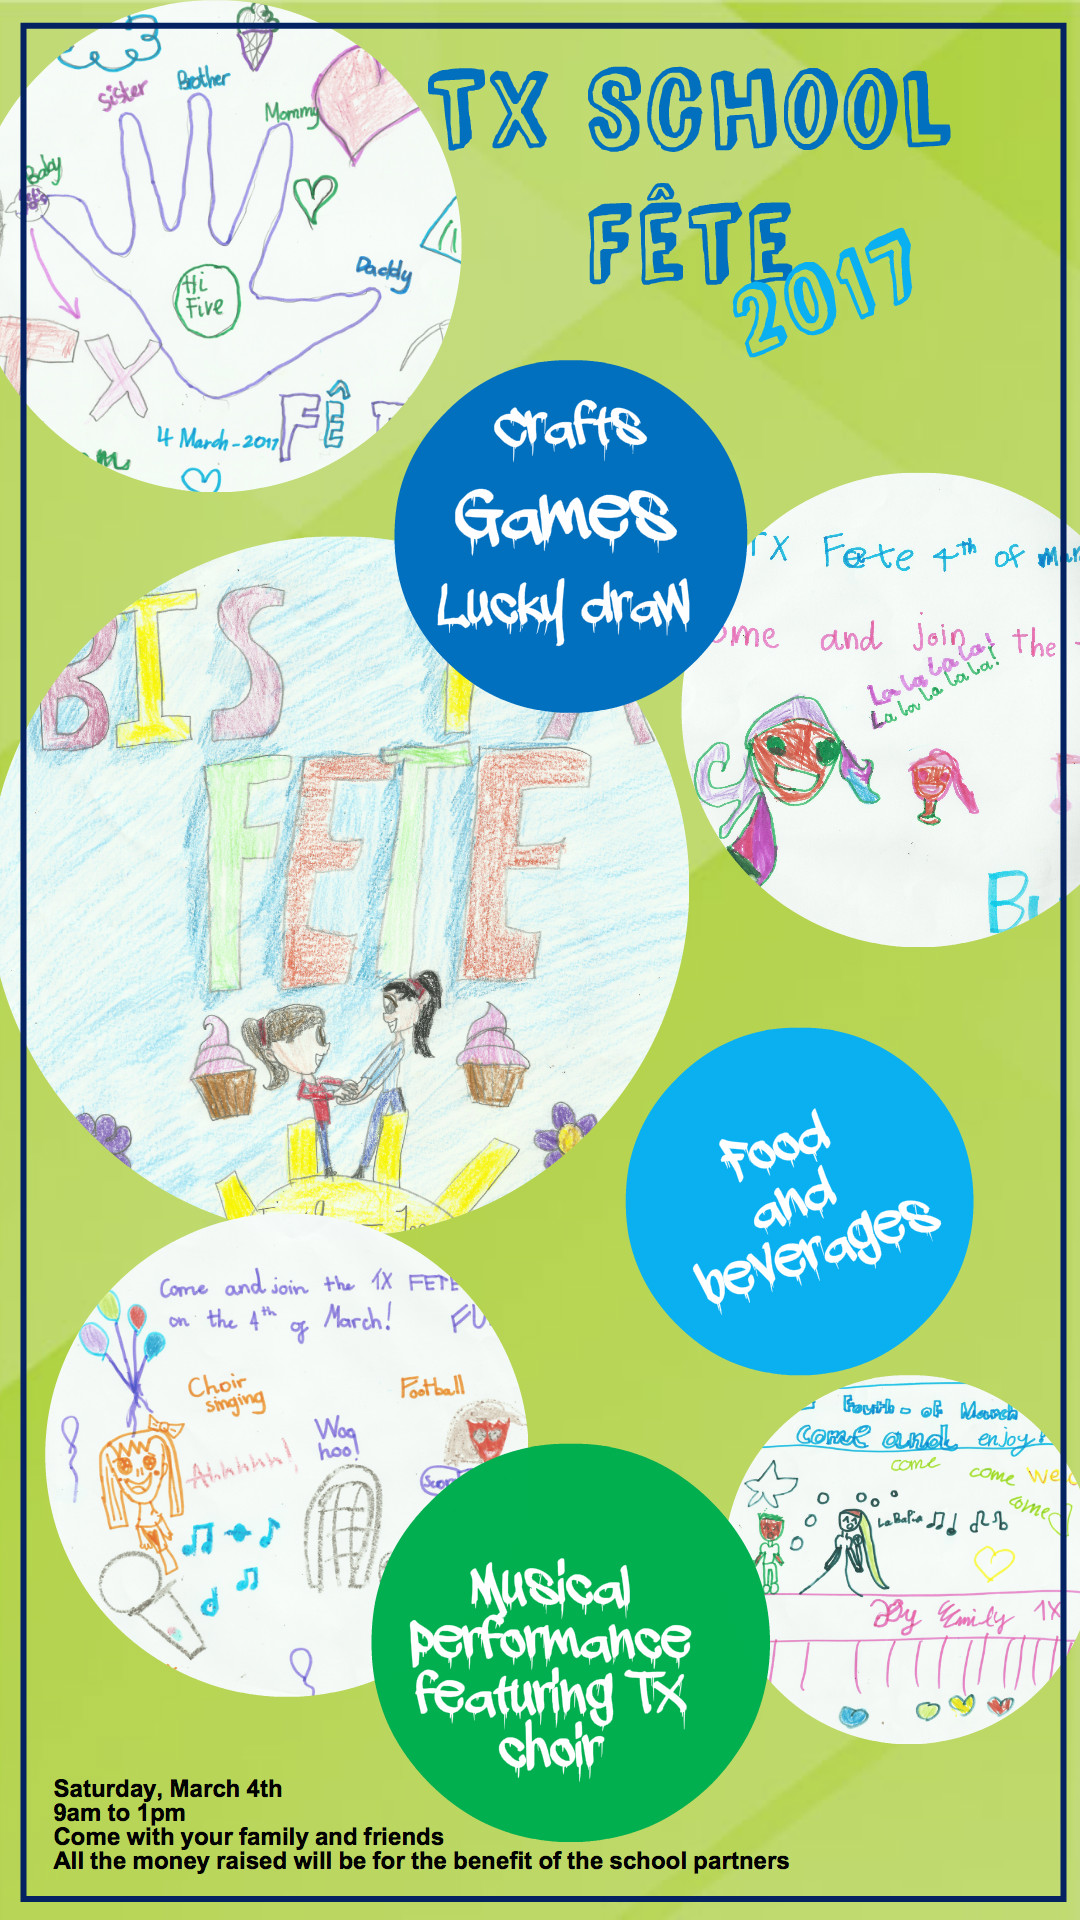 TX SCHOOL
FÊTE
2017
Sister
Brother
Mommy
Baby
Daddy
Hi
Five
TX
4 March-2017
FÊ
Crafts
Games
Lucky draw
TX Fete 4th of Mar
ome and join the
La la la la!
La la la la la!
BIS
FETE
Food
and
beverages
Come and join the 1X FETE
on the 4th of March!
FU
Choir
singing
Football
Woo
hoo!
Ahhhhhh!
Fouth-of March
come and enjoy
come
come
come
La
By Emily 1X
Musical
performance
featuring TX
choir
Saturday, March 4th
9am to 1pm
Come with your family and friends
All the money raised will be for the benefit of the school partners